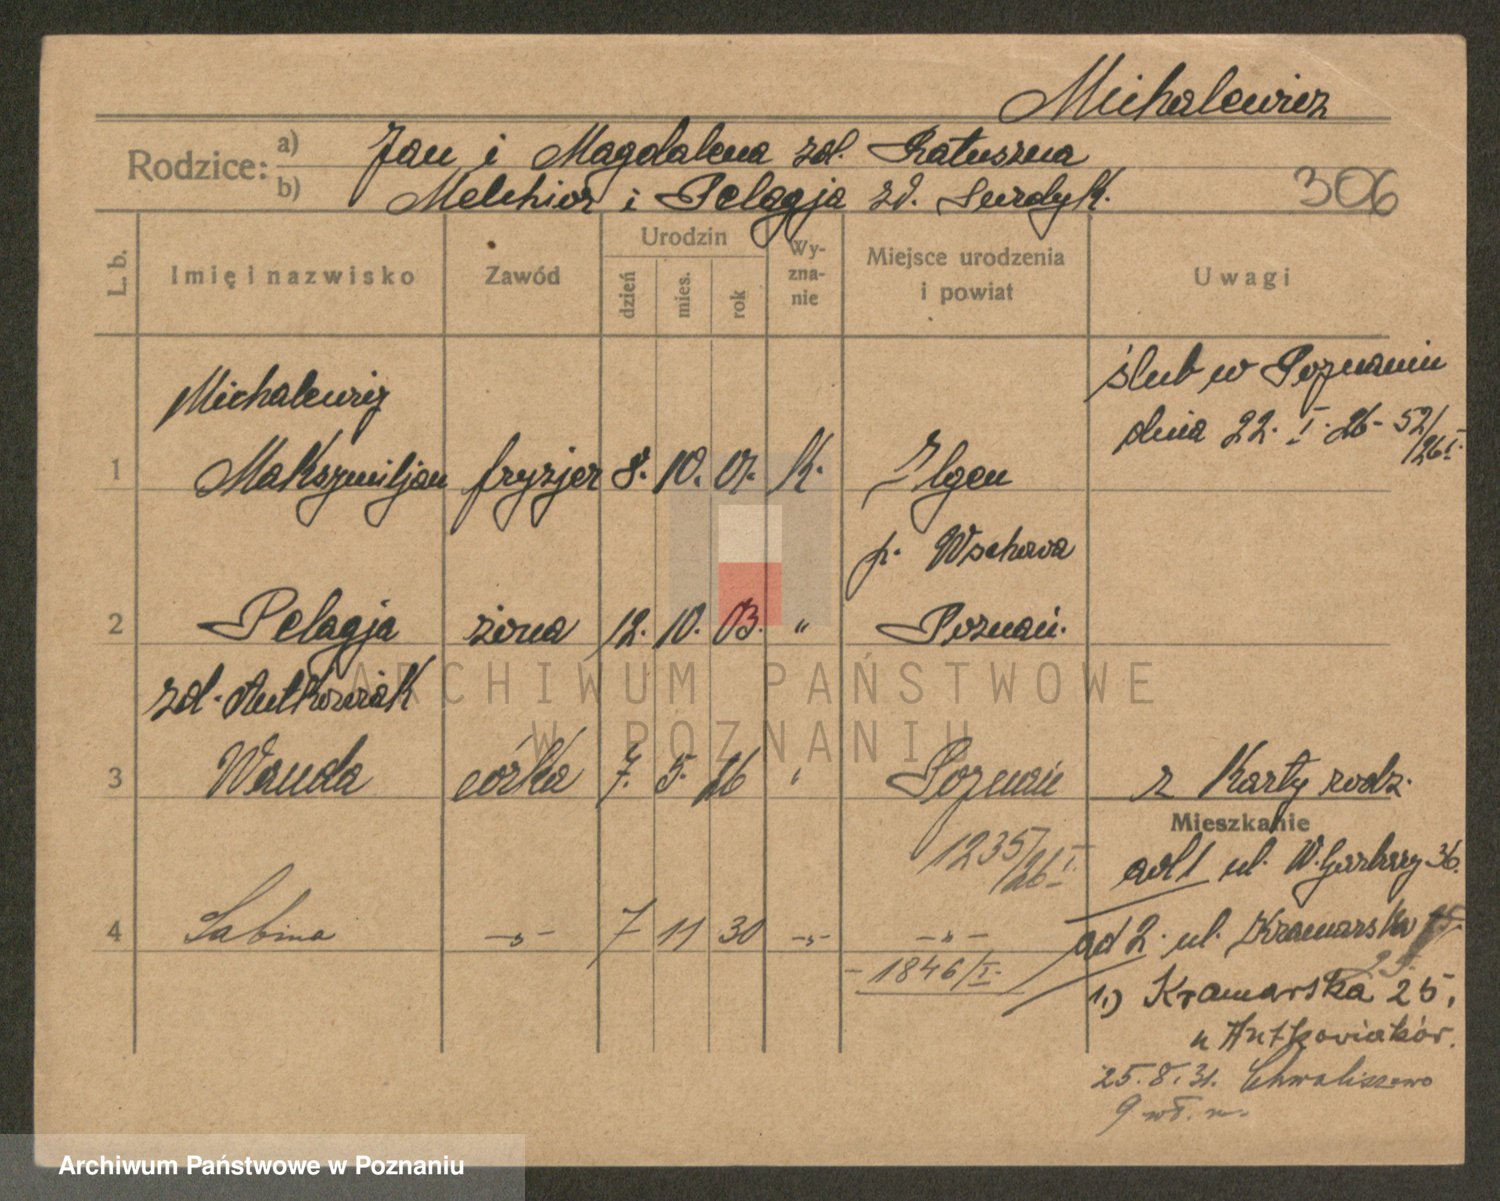 Michalewicz
Rodzice: a) Jan i Magdalena zd. Ratuszna
b) Melchior i Pelagja zd. Surdyk.
306
L. b.
Imię i nazwisko
Zawód
Urodzin
dzień
mies.
rok
Wy-
zna-
nie
Miejsce urodzenia
i powiat
Uwagi
ślub w Poznaniu
dnia 22. I. 26 - 52/26 I.
Michalewicz
1 Maksymiljan fryzjer 8. 10. 01. K. Ilgen
p. Wschowa
2 Pelagja żona 12. 10. 03. " Poznań.
zd. Antkowiak
3 Wanda córka 7. 5. 26 " Poznań z Karty rodz.
1235/26 I.
Mieszkanie
ad 1 ul. W. Garbary 36.
4 Sabina -"- 7 11 30 -"- -"-
- 1846/I.
ad 2. ul. Kramarska
25.
1.) Kramarska 25,
u Antkowiaków.
25.8.31. Chwaliszewo
9
ARCHIWUM PAŃSTWOWE
W POZNANIU
Archiwum Państwowe w Poznaniu